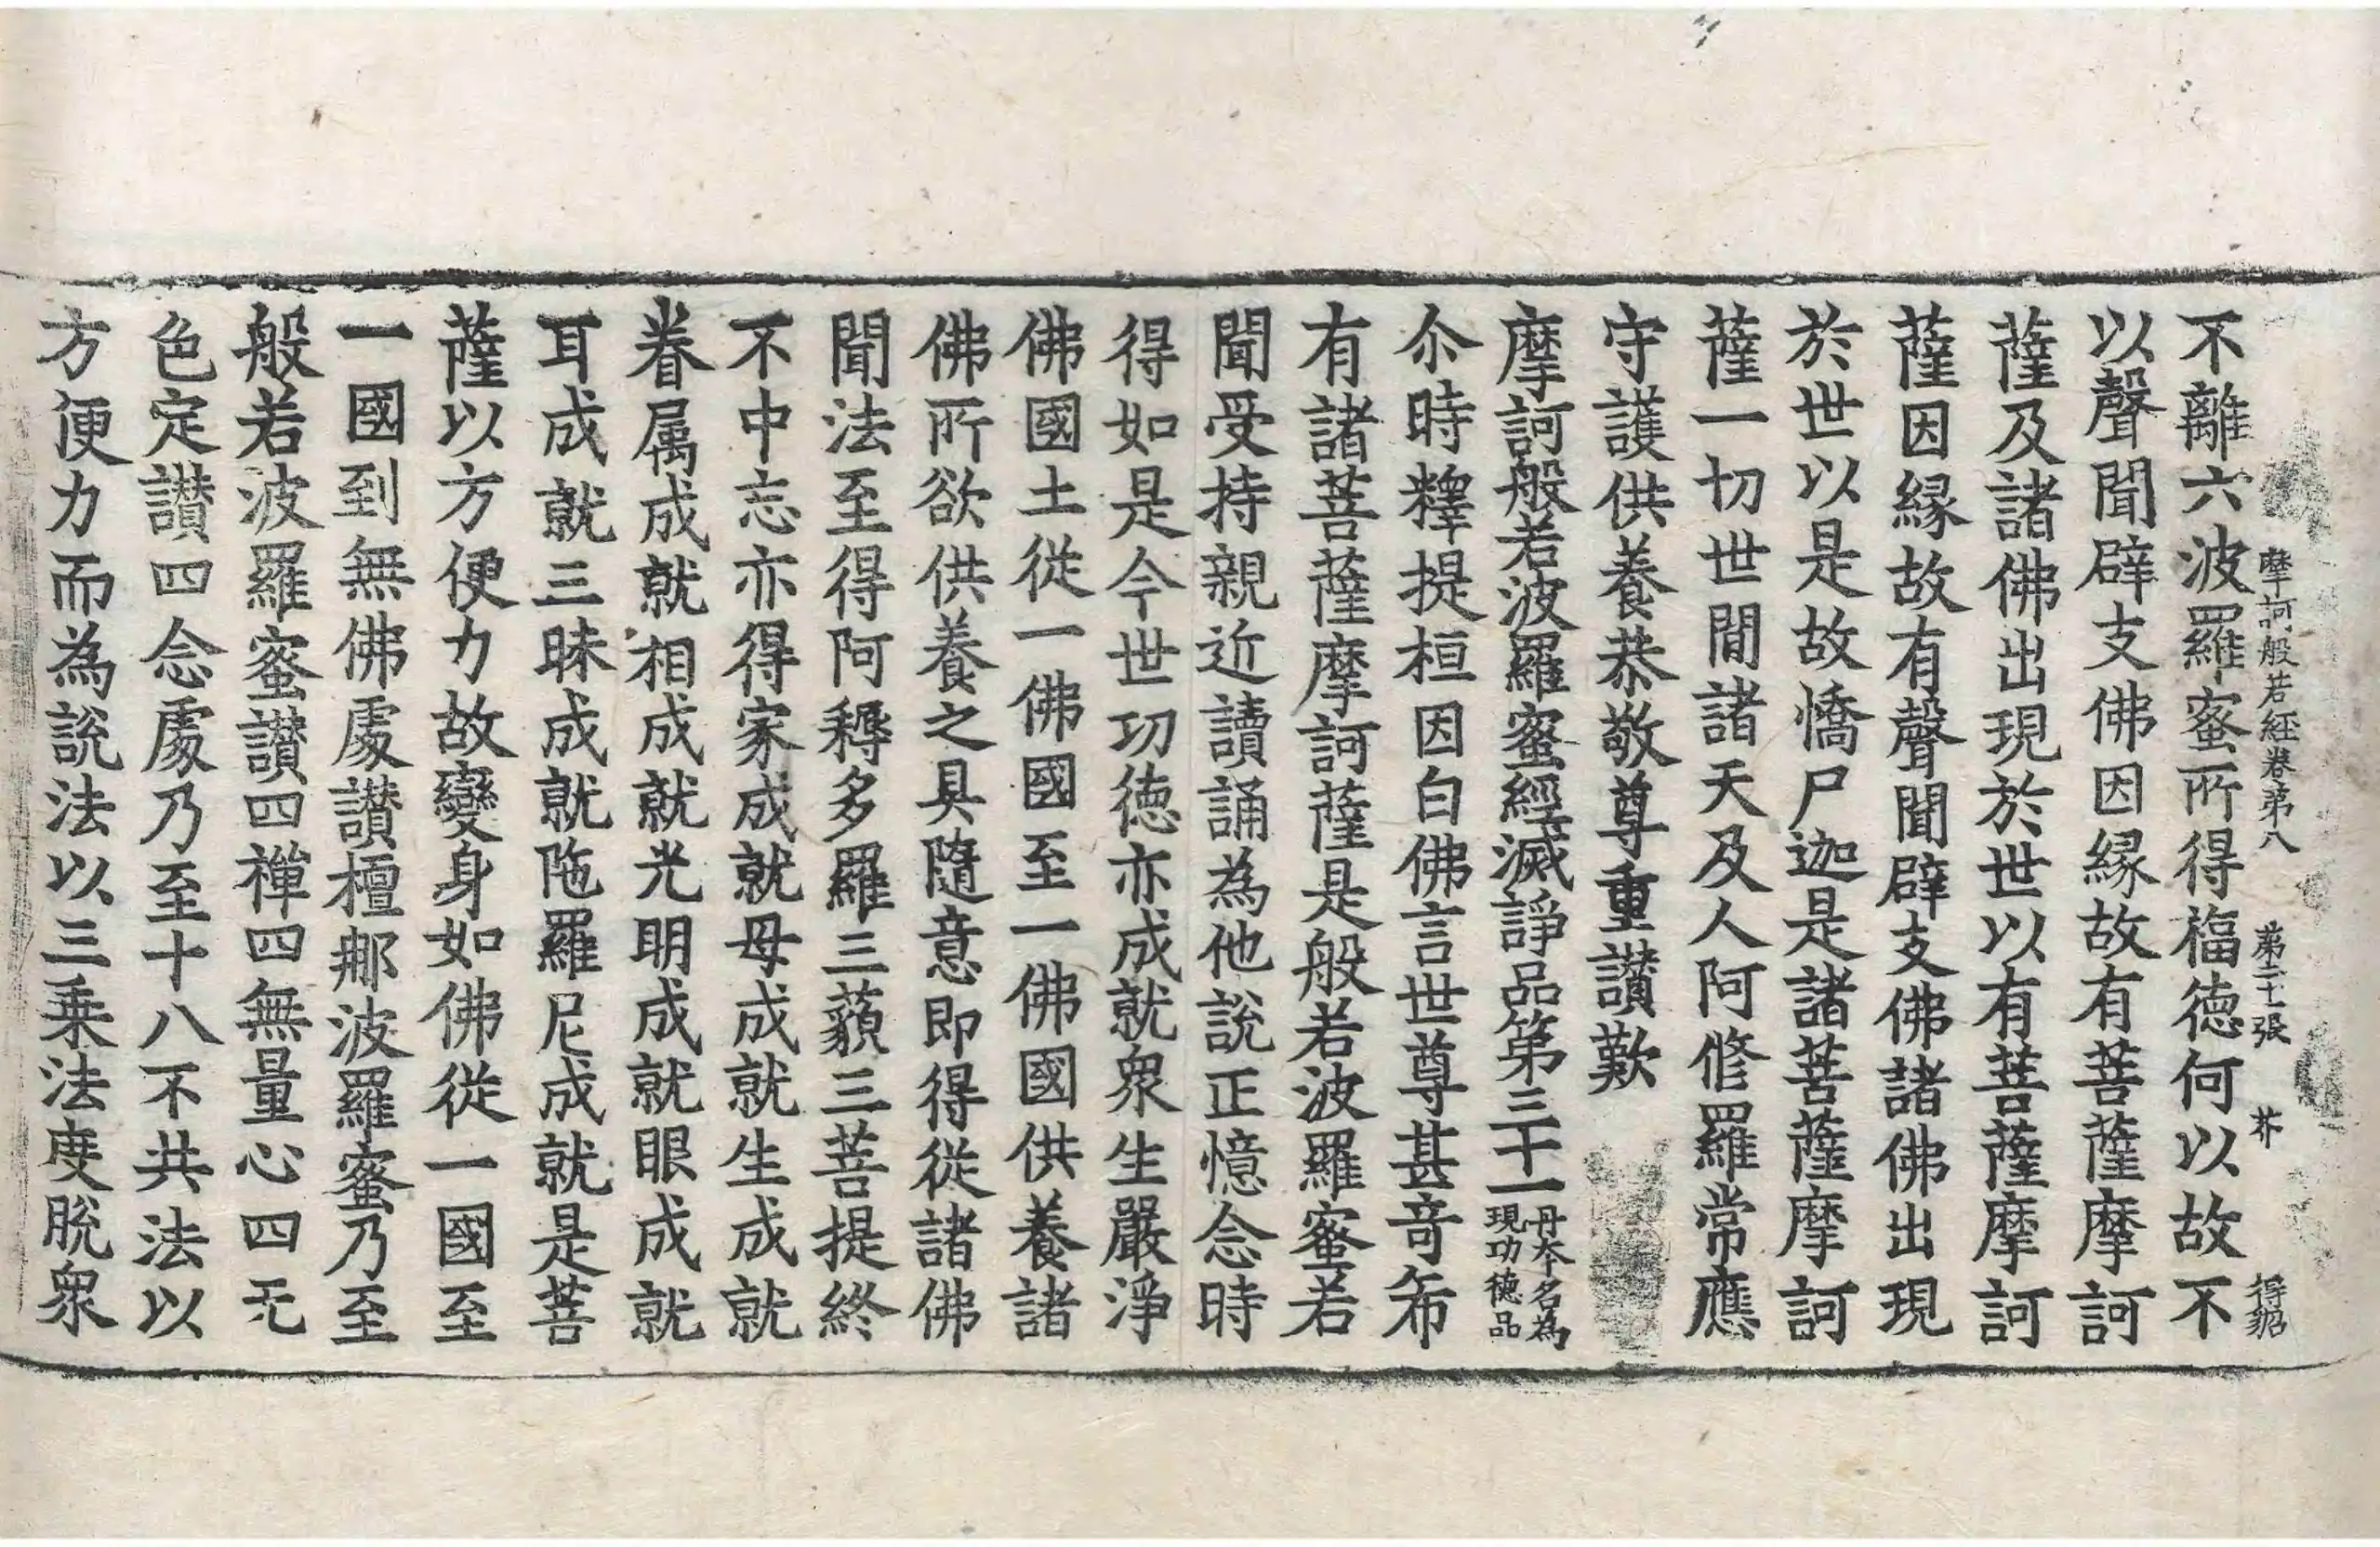 摩訶般若經卷第八 第二十張 芥 得貂
不離六波羅蜜所得福德何以故不
以聲聞辟支佛因縁故有菩薩摩訶
薩及諸佛出現於世以有菩薩摩訶
薩因縁故有聲聞辟支佛諸佛出現
於世以是故憍尸迦是諸菩薩摩訶
薩一切世間諸天及人阿脩羅常應
守護供養恭敬尊重讃歎
摩訶般若波羅蜜經滅諍品第三十一 丹本名為現功德品
尒時釋提桓因白佛言世尊甚奇希
有諸菩薩摩訶薩是般若波羅蜜若
聞受持親近讀誦為他說正憶念時
得如是今世功德亦成就衆生嚴淨
佛國土從一佛國至一佛國供養諸
佛所欲供養之具隨意即得從諸佛
聞法至得阿耨多羅三藐三菩提終
不中忘亦得家成就母成就生成就
眷属成就相成就光明成就眼成就
耳成就三昧成就陁羅尼成就是菩
薩以方便力故變身如佛從一國至
一國到無佛處讃檀𨙻波羅蜜乃至
般若波羅蜜讃四禪四無量心四无
色定讃四念處乃至十八不共法以
方便力而為說法以三乗法度脫衆